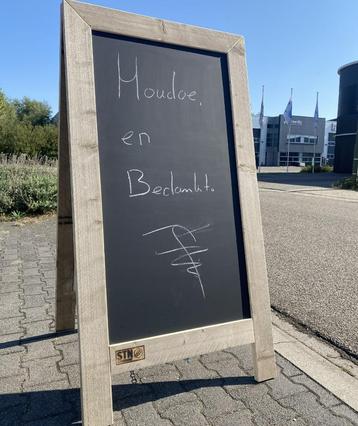 Houdoe,
en
Bedankt.
STW